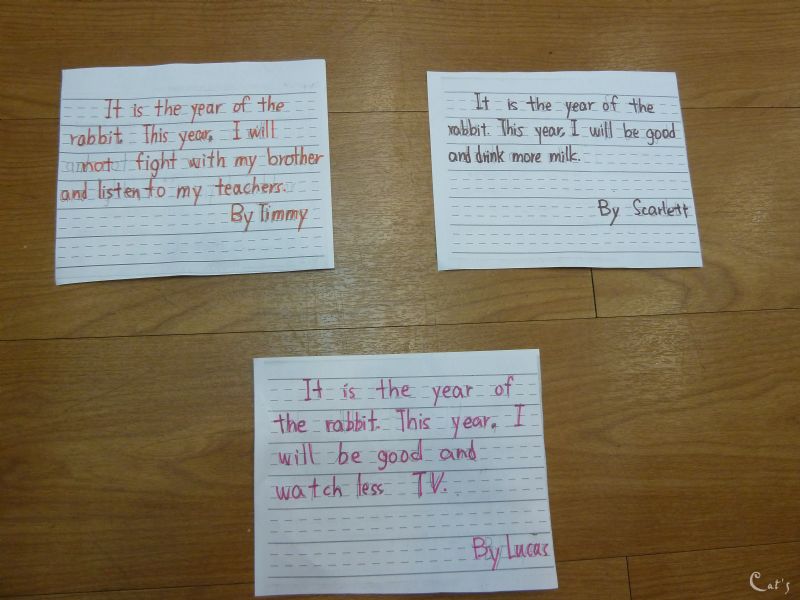 It is the year of the
rabbit. This year, I will
not fight with my brother
and listen to my teachers.
By Timmy
It is the year of the
rabbit. This year, I will be good
and drink more milk.
By Scarlett
It is the year of
the rabbit. This year, I
will be good and
watch less TV.
By Lucas
Cat's